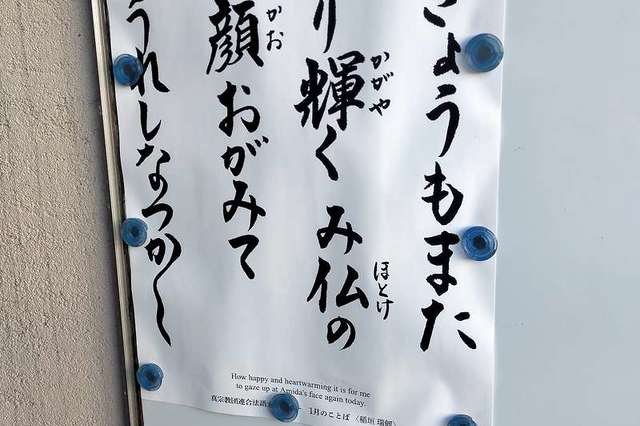 きょうもまた
り輝く み仏の
かがや
ほとけ
顔 おがみて
かお
うれしなつかし
How happy and heartwarming it is for me
to gaze up at Amida's face again today.
真宗教団連合法語 1月のことば 〈稲垣 瑞劔〉